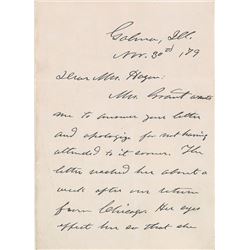 Galena, Ill.
Nov. 30th /79
Dear Mrs. Hager:
Mrs. Grant wants
me to answer your letter
and apologize for not having
attended to it sooner. The
letter reached her about a
week after our return
from Chicago. Her eyes
effect her so that she